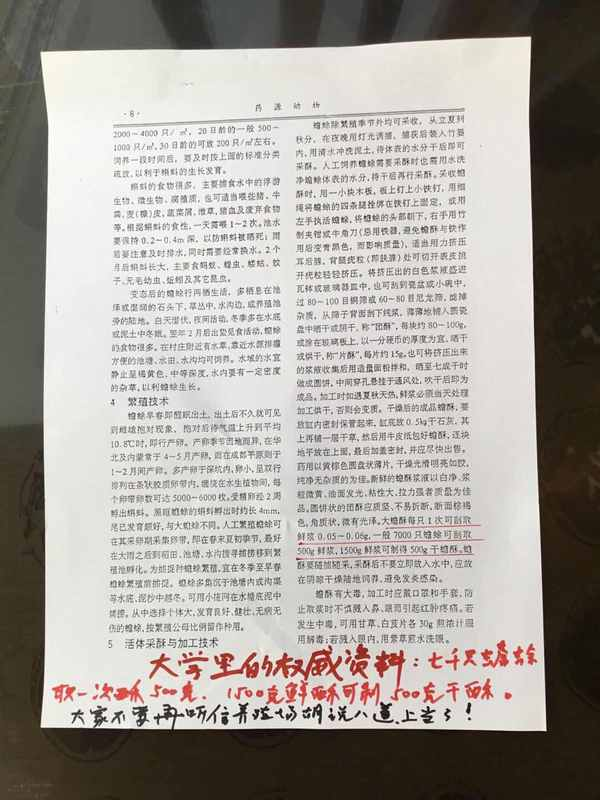 ·8·
药源动物
2000~4000 只/㎡，20日龄的一般 500~
1000 只/㎡，30日龄的可放 200 只/㎡左右。
饲养一段时间后，要及时按上面的标准分类
疏放，以利于蝌蚪的生长发育。
蝌蚪的食物很多，主要捕食水中的浮游
生物、微生物、腐殖质，也可适当喂些猪、牛
粪，麦(糠)皮，蔬菜屑，嫩草，猪血及废弃食物
等，根据蝌蚪的食性，一天需喂1~2次。池水
要保持 0.2~0.4m 深，以防蝌蚪被晒死；雨
前要注意及时排水，同时需要经常换水。2个
月后蝌蚪长大，主要食蚂蚁、蝗虫、蝼蛄、蚊
子、无毛幼虫、蚯蚓及其它昆虫。
变态后的蟾蜍行两栖生活，多栖息在池
泽或湿润的石头下、草丛中、水沟边，或养殖池
旁的陆地。白天潜伏，夜间活动，冬季多在水底
或泥土中冬眠。翌年2月后出蛰见食活动，蟾蜍
的食物很多。在村庄附近有水草、靠近水源排灌
方便的池塘、水田、水沟均可饲养。水域的水宜
静止呈稀黄色，中等深度，水内要有一定密度
的杂草，以利蟾蜍生长。
4 繁殖技术
蟾蜍早春即醒眠出土，出土后不久就可见
到雌雄抱对现象，抱对后待气温上升到平均
10.8℃时，即行产卵。产卵季节因地而异，在华
北及内蒙常于4~5月产卵，而在成都平原则于
1~2月间产卵。多产卵于深坑内，卵小，呈双行
排列在条状胶质卵带内，缠绕在水生植物间，每
个卵带卵数可达 5000~6000 枚。受精卵经2周
孵出蝌蚪。黑眶蟾蜍的蝌蚪孵出时约长 4mm，
尾已发育颇好，与大蚊幼不同。人工繁殖蟾蜍可
在其采卵期采集卵带，即在春末夏初季节，最好
在大雨之后到稻田、池塘、水沟搜寻捕捞移到繁
殖池孵化。为捕捉种蟾蜍繁殖，宜在冬季至早春
蟾蜍繁殖前捕捉。蟾蜍多集沉于池塘内或沟渠
等水底、泥沙中越冬。可用小拖网在水塘底泥中
捞捞。从中选择个体大，发育良好、健壮、无病无
伤的蟾蜍，按繁殖公母比例留作种用。
5 活体采酥与加工技术
蟾蜍除繁殖季节外均可采收，从立夏到
秋分，在夜晚用灯光诱捕，捕获后装入竹篓
内，用清水冲洗泥土，待体表的水分干后即可
采酥。人工饲养蟾蜍需要采酥时也需用水洗
净蟾蜍体表的水分，待干后再行采酥。采收蟾
酥时，用一小块木板，板上钉上小铁钉，用细
绳将蟾蜍的四条腿拴绑在铁钉上固定，或用
左手执活蟾蜍，将蟾蜍的头部朝下，右手用竹
制夹钳或牛角刀(忌用铁器，避免蟾酥与铁作
用后变青黑色，而影响质量)，适当用力挤压
耳后腺，背腿疣粒(即肤源)处可切开表皮挑
开疣粒轻轻挤压。将挤压出的白色浆液盛进
瓦钵或玻璃器皿中，也可刮到瓷盆或小碗中，
过 80~100 目铜筛或 60~80 目尼龙筛，滤掉
杂质，从筛子背面刮下纯浆，薄薄地铺入圆瓷
盘中晒干或阴干，称“团酥”，每块约 80~100g，
或涂在玻璃板上，以一分硬币的厚度为宜，晒干
或烘干，称“片酥”，每片约 15g。也可将挤压出来
的浆液收集后用适量面粉拌和，晒至七成干时
做成圆饼，中间穿孔悬挂于通风处，吹干后即为
成品。加工时如遇夏秋天热，鲜浆必须当天处理
加工烘干，否则会变质。干燥后的成品蟾酥，要
放缸内密封保管起来，缸底放 0.5kg 干石灰，其
上再铺一层干草，然后用牛皮纸包好蟾酥，逐块
地平放在上面，最后加盖密封，并应尽快出售。
药用以黄棕色圆盘状薄片，干燥光滑明亮如胶，
纯净无杂质的为佳。新鲜的蟾酥浆液以白净、浆
粒微黄、油面发光、粘性大、拉力强者质量为佳
品。圆饼状的团酥应质坚、不易折断，断面棕褐
色，角质状，微有光泽。大蟾酥每只1次可刮取
鲜浆 0.05~0.06g，一般 7000 只蟾蜍可刮取
500g 鲜浆，1500g 鲜浆可制得 500g 干蟾酥。蟾
酥要随捕随采，采酥后不要立即放入水中，应放
在阴凉干燥陆地饲养，避免发炎感染。
蟾酥有大毒，加工时应戴口罩和手套，防
止取浆时不慎溅入鼻、眼而引起红肿疼痛。若
发生中毒，可用甘草、白芨片各 30g 煎浓汁服
用解毒；若溅入眼内，用紫草煎水洗眼。
大学里的权威资料：七千只
取一次 500克. 1500克鲜酥可制 500克干酥。
大家不要再听信养殖场胡说八道,上当了！